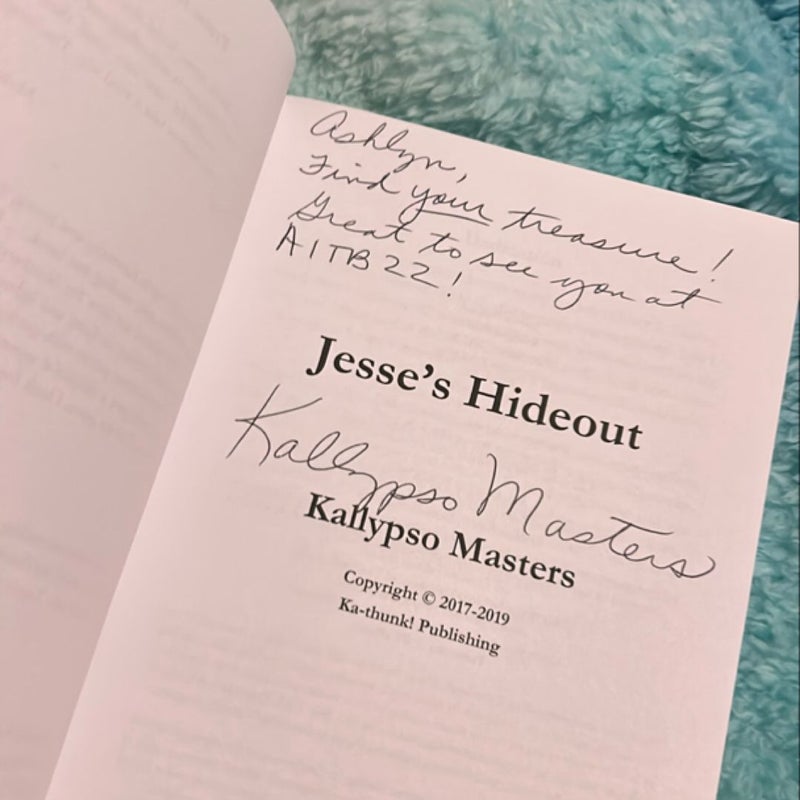 Ashlyn,
Find your treasure!
Great to see you at
AITB 22!
Jesse's Hideout
Kallypso Masters
Kallypso Masters
Copyright © 2017-2019
Ka-thunk! Publishing